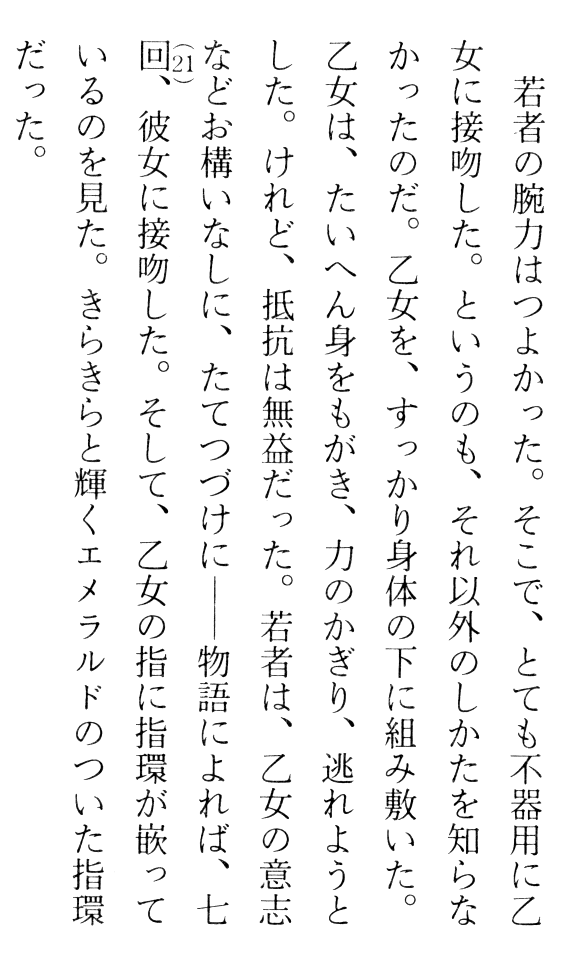 若者の腕力はつよかった。そこで、とても不器用に乙
女に接吻した。というのも、それ以外のしかたを知らな
かったのだ。乙女を、すっかり身体の下に組み敷いた。
乙女は、たいへん身をもがき、力のかぎり、逃れようと
した。けれど、抵抗は無益だった。若者は、乙女の意志
などお構いなしに、たてつづけに――物語によれば、七
回、彼女に接吻した。そして、乙女の指に指環が嵌って
(21)
いるのを見た。きらきらと輝くエメラルドのついた指環
だった。